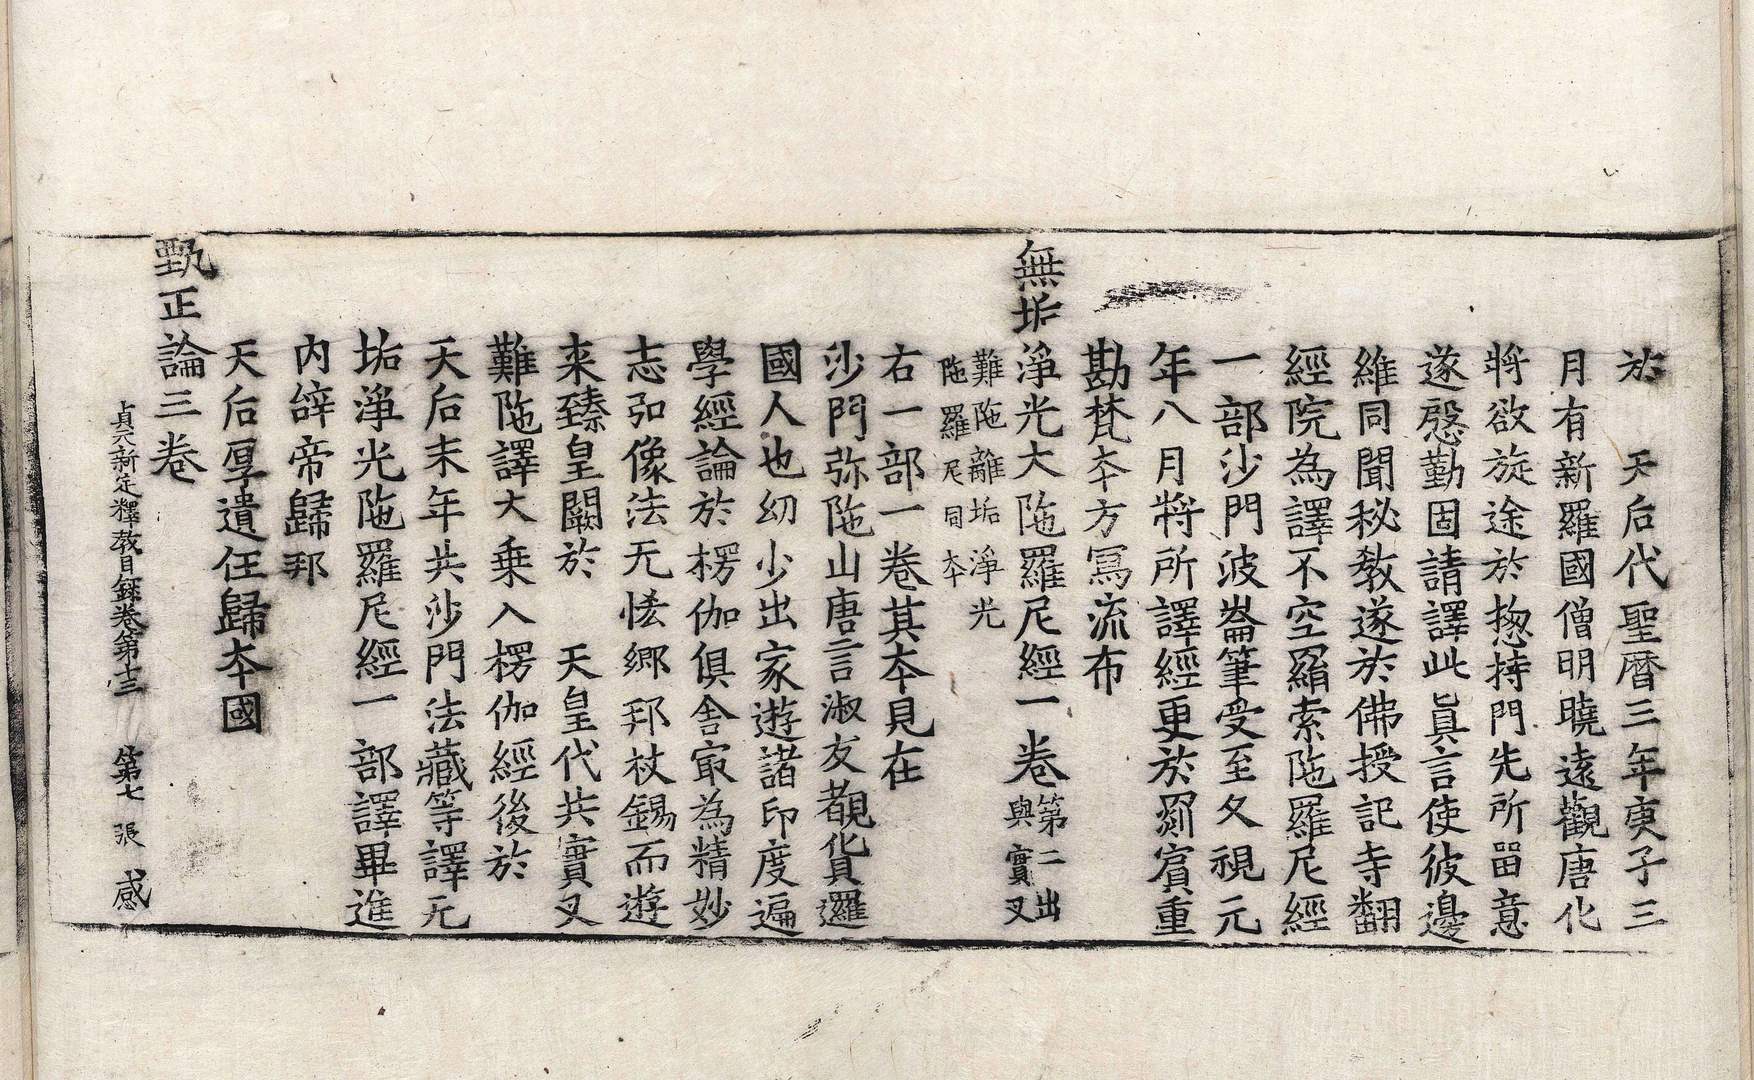 於　天后代聖曆三年庚子三
月有新羅國僧明曉遠觀唐化
將欲旋途於揔持門先所留意
遂慇勤固請譯此眞言使彼邊
維同聞秘教遂於佛授記寺翻
經院為譯不空羂索陁羅尼經
一部沙門波崙筆受至久視元
年八月將所譯經更於罽賓重
勘梵本方冩流布
無垢淨光大陁羅尼經一卷
第二出
與實叉
難陁離垢淨光
陁羅尼同本
右一部一卷其本見在
沙門弥陁山唐言淑友覩貨邏
國人也幼少出家遊諸印度遍
學經論於楞伽俱舍㝡為精妙
志弘像法无悋鄉邦杖錫而遊
来臻皇闕於　天皇代共實叉
難陁譯大乗入楞伽經後於
天后末年共沙門法藏等譯无
垢淨光陁羅尼經一部譯畢進
內辝帝歸邦
天后厚遺任歸本國
甄正論三卷
貞元新定釋教目録卷第十三　第七張　感